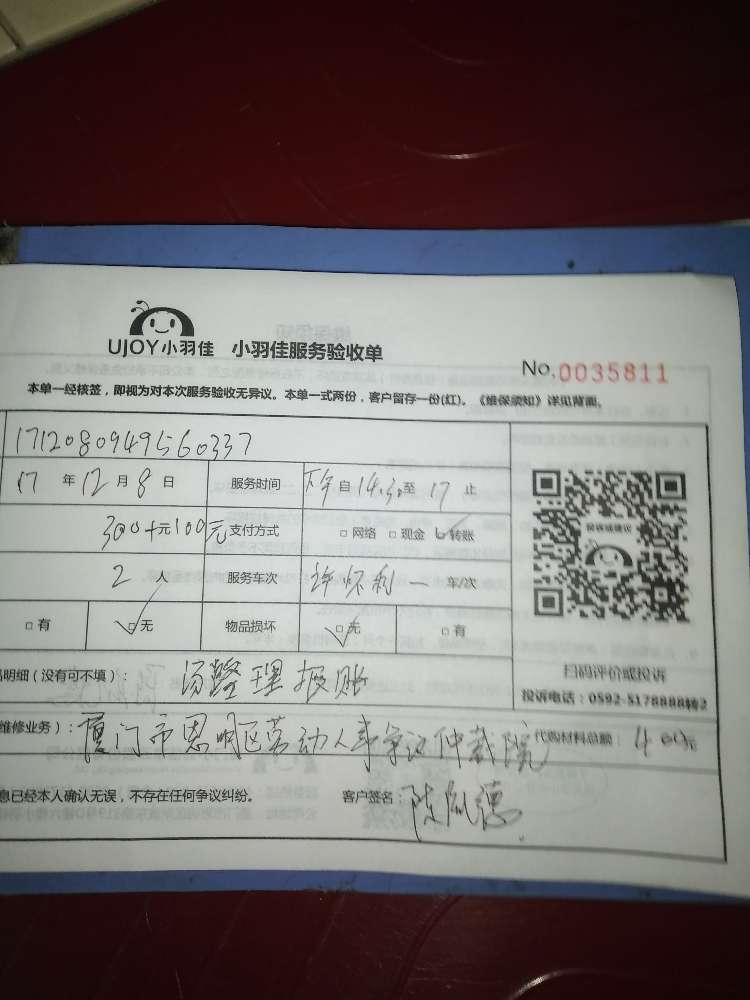 UJOY小羽佳 小羽佳服务验收单
No.0035811
本单一经核签，即视为对本次服务验收无异议。本单一式两份，客户留存一份(红)。《维保须知》详见背面。
1712080949560337
17 年 12 月 8 日 服务时间 下午 自 14.30 至 17 止
300+元100元 支付方式 □ 网络 □ 现金 □ 转账
2 人 服务车次 许怀利 一 车/次
□ 有 □ 无 物品损坏 □ 无 □ 有
投诉或建议
扫码评价或投诉
投诉电话：0592-5178888转2
明细（没有可不填）： 汤整理报账
维修业务）： 厦门市思明区劳动人事争议仲裁院 代购材料总额： 400元
息已经本人确认无误，不存在任何争议纠纷。 客户签名：